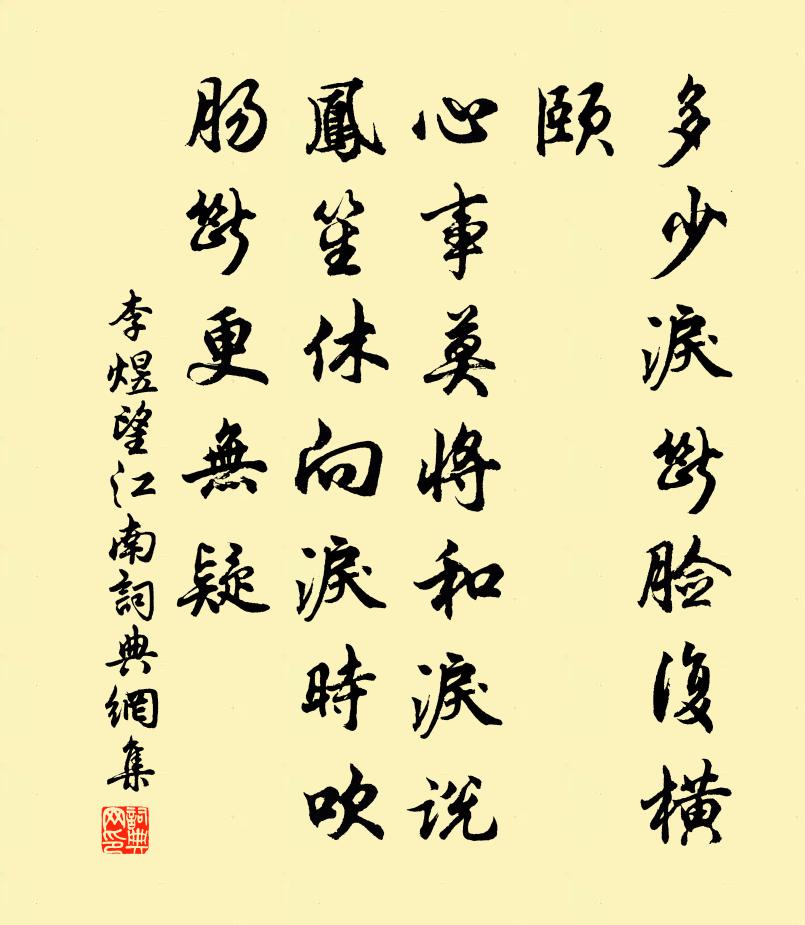 多少淚斷脸復橫
頤
心事莫將和淚說
鳳笙休向淚時吹
肠斷更無疑
李煜望江南詞典網集
詞典网印